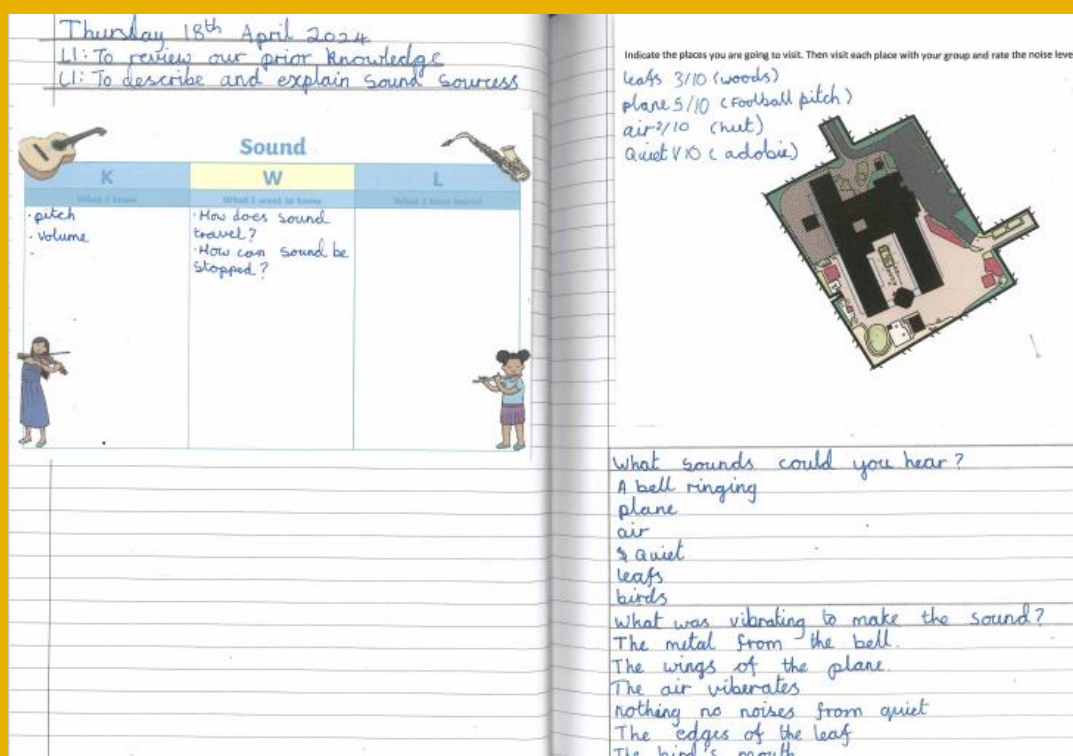 Thursday 18th April 2024
LI: To review our prior knowledge
LI: To describe and explain sound sourcess
Sound
K
W
L
What I know
What I want to know
What I have learnt
· pitch
· volume
·
· How does sound
travel?
· How can sound be
stopped?
Indicate the places you are going to visit. Then visit each place with your group and rate the noise leve
leafs 3/10 (woods)
plane 5/10 (Football pitch)
air 2/10 (hut)
Quiet 1/10 (adobie)
What sounds could you hear?
A bell ringing
plane
air
Quiet
leafs
birds
What was vibrating to make the sound?
The metal from the bell.
The wings of the plane.
The air viberates
nothing no noises from quiet
The edges of the leaf
The bird's mouth